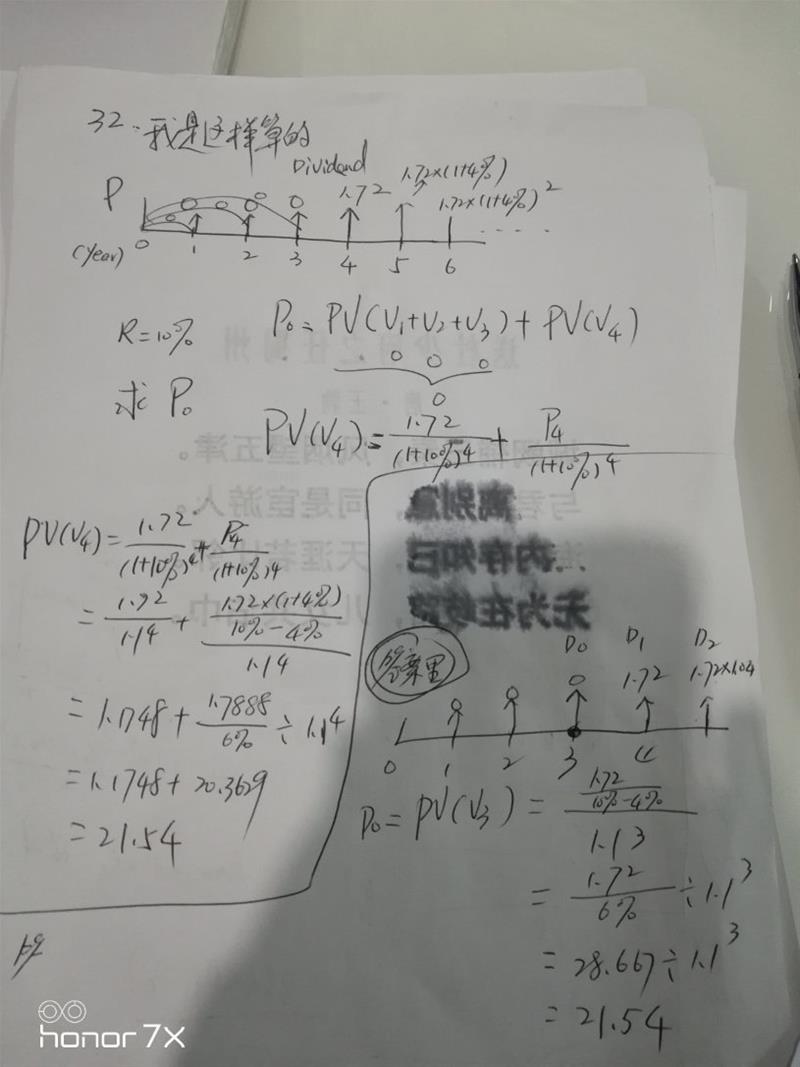 32. 我是这样算的
Dividend
P 0 0 0 1.72 1.72×(1+4%) 1.72×(1+4%)² ·····
(Year) 0 1 2 3 4 5 6
R=10% P₀= PV(V₁+V₂+V₃)+ PV(V₄)
0 0 0
0
求 P₀
PV(V₄)= 1.72/(1+10%)⁴ + P₄/(1+10%)⁴
PV(V₄)= 1.72/(1+10%)⁴ + P₄/(1+10%)⁴
= 1.72/1.1⁴ + (1.72×(1+4%)/(10%-4%))/1.1⁴
= 1.1748 + 1.7888/6% ÷ 1.1⁴
= 1.1748 + 20.3629
= 21.54
答案里
D₀ D₁ D₂
0 0 0 1.72 1.72×1.04
0 1 2 3 4
P₀= PV(V₃) = (1.72/(10%-4%))/1.1³
= 1.72/6% ÷ 1.1³
= 28.667 ÷ 1.1³
= 21.54
honor 7X